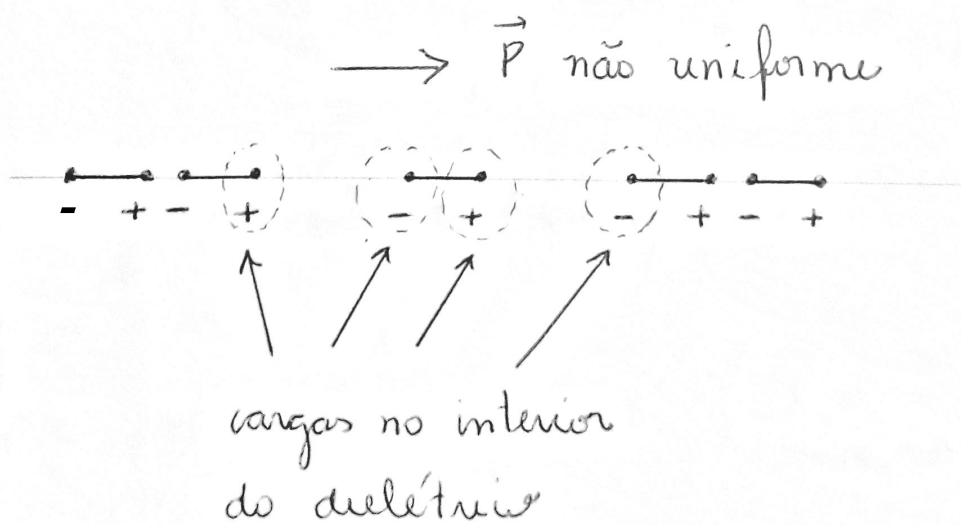 P não uniforme
- + - + - + - + - +
cargas no interior
do dielétrico